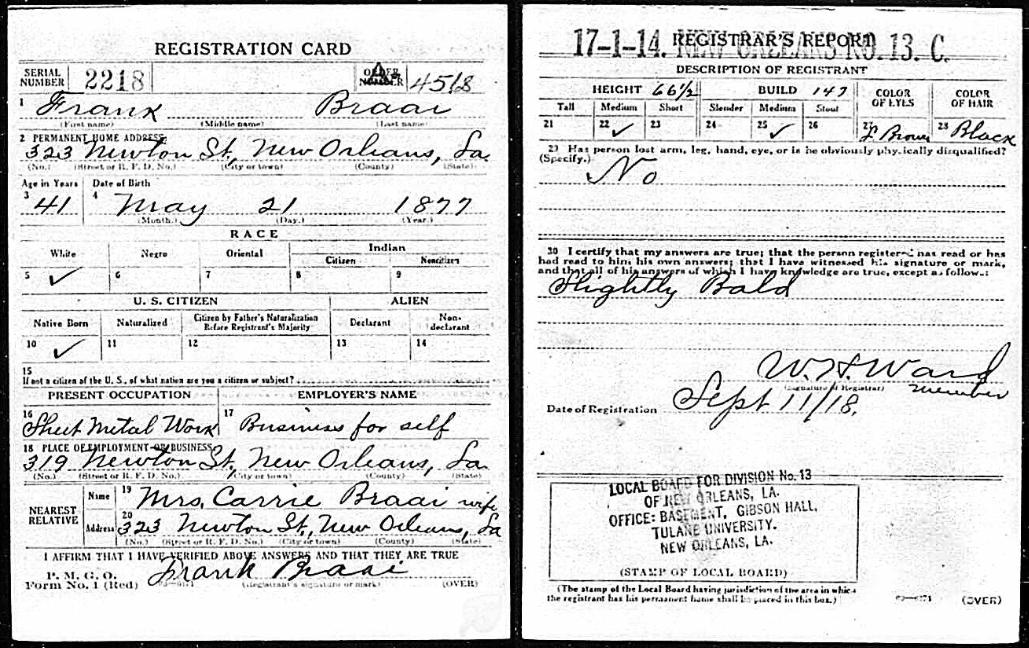 REGISTRATION CARD
SERIAL NUMBER 2218 ORDER NUMBER 4518
1 Frank Braai
(First name) (Middle name) (Last name)
2 PERMANENT HOME ADDRESS:
323 Newton St, New Orleans, La
(No.) (Street or R. F. D. No.) (City or town) (County) (State)
Age in Years Date of Birth
3 41 4 May 21 1877
(Month.) (Day.) (Year.)
RACE
White Negro Oriental Indian
Citizen Noncitizen
5 ✓ 6 7 8 9
U. S. CITIZEN ALIEN
Native Born Naturalized Citizen by Father's Naturalization Before Registrant's Majority Declarant Non-declarant
10 ✓ 11 12 13 14
15
If not a citizen of the U. S., of what nation are you a citizen or subject?
PRESENT OCCUPATION EMPLOYER'S NAME
16 Sheet Metal Work 17 Business for self
18 PLACE OF EMPLOYMENT OR BUSINESS:
319 Newton St, New Orleans, La
(No.) (Street or R. F. D. No.) (City or town) (County) (State)
NEAREST RELATIVE Name 19 Mrs. Carrie Braai wife
Address 20 323 Newton St, New Orleans, La
(No.) (Street or R. F. D. No.) (City or town) (County) (State)
I AFFIRM THAT I HAVE VERIFIED ABOVE ANSWERS AND THAT THEY ARE TRUE
P. M. G. O.
Form No. 1 (Red) Frank Braai
(Registrant's signature or mark) (OVER)
17-1-14. NEW ORLEANS NO. 13. C.
REGISTRAR'S REPORT
DESCRIPTION OF REGISTRANT
HEIGHT 66½ BUILD 147 COLOR OF EYES COLOR OF HAIR
Tall Medium Short Slender Medium Stout
21 22 ✓ 23 24 25 ✓ 26 27 L Brown 28 Black
29 Has person lost arm, leg, hand, eye, or is he obviously physically disqualified?
(Specify.)
No
30 I certify that my answers are true; that the person registered has read or has
had read to him his own answers; that I have witnessed his signature or mark,
and that all of his answers of which I have knowledge are true, except as follows:
Slightly Bald
W. H. Ward
(Signature of Registrar) member
Date of Registration Sept 11/18.
LOCAL BOARD FOR DIVISION No. 13
OF NEW ORLEANS, LA.
OFFICE: BASEMENT, GIBSON HALL,
TULANE UNIVERSITY.
NEW ORLEANS, LA.
(STAMP OF LOCAL BOARD)
(The stamp of the Local Board having jurisdiction of the area in which
the registrant has his permanent home shall be placed in this box.)
(OVER)